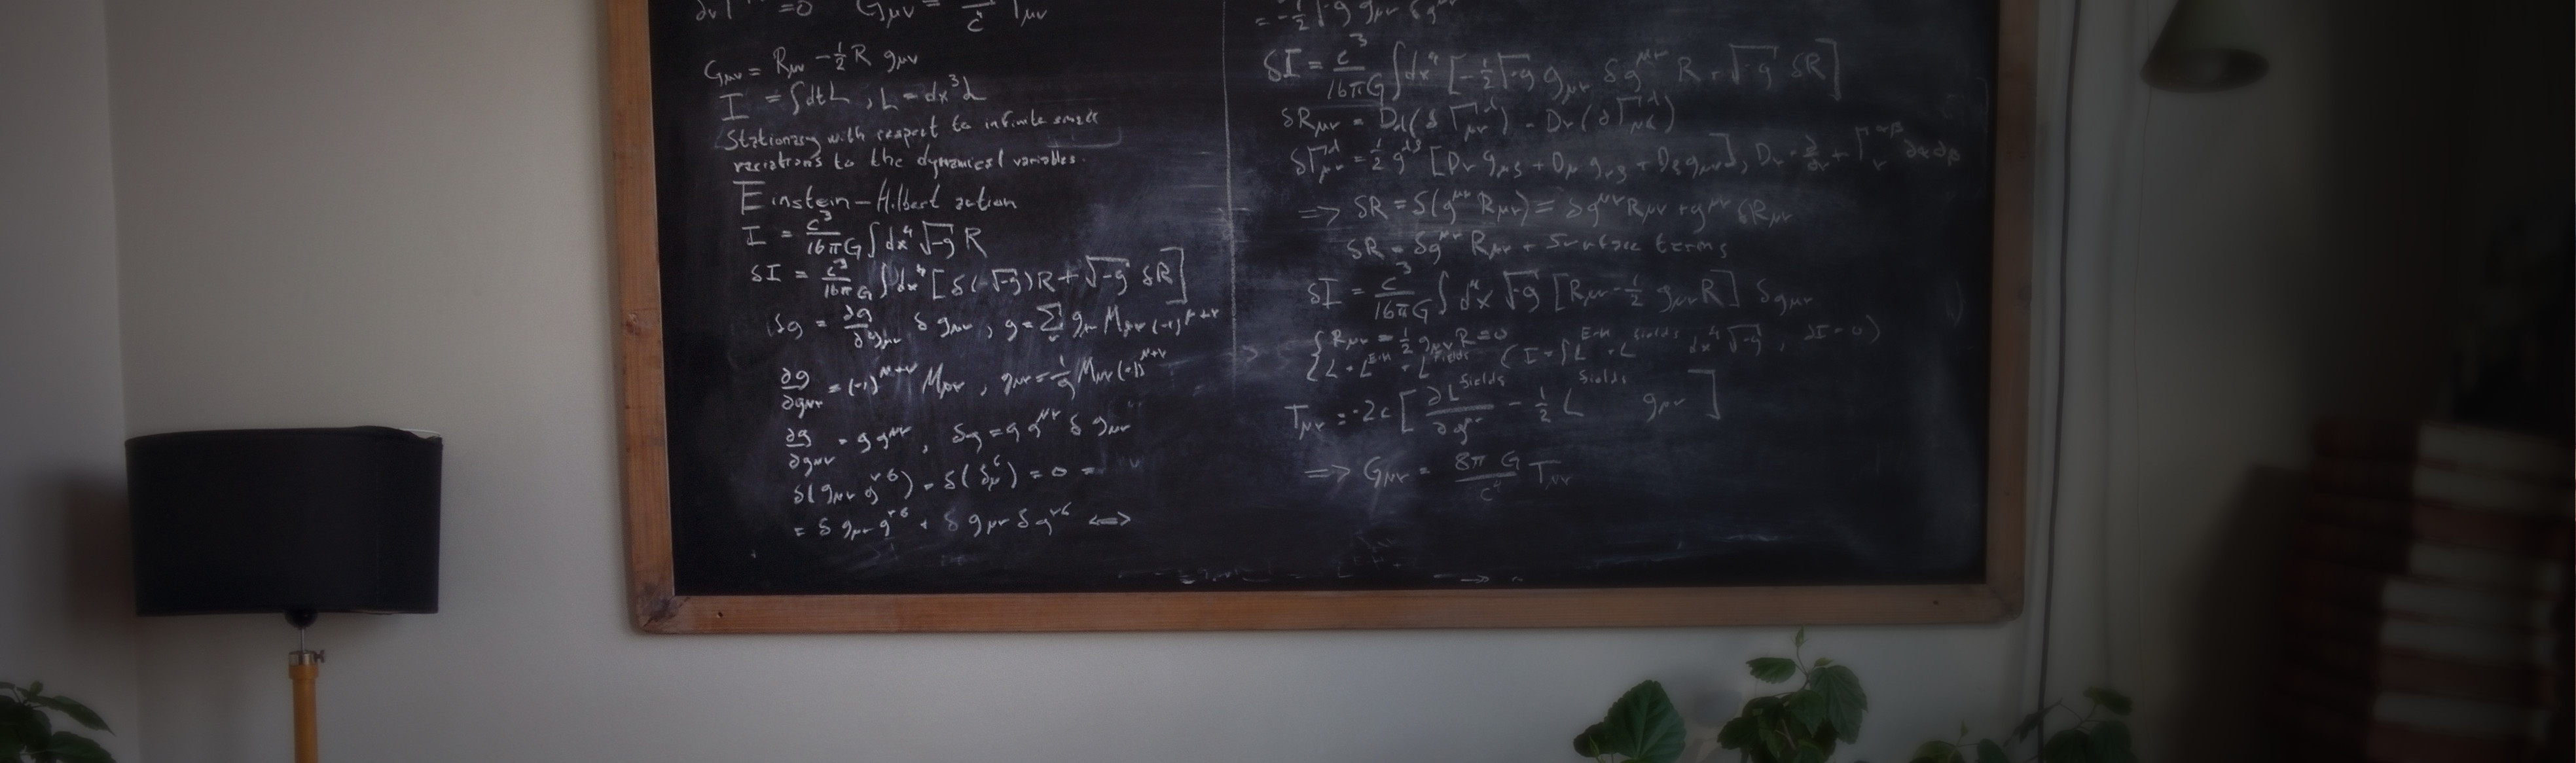 G_μν = R_μν - 1/2 R g_μν
I = ∫dt L , L = dx³ L
Stationary with respect to infinite small
variations to the dynamical variables.
Einstein-Hilbert action
I = c³/16πG ∫dx⁴ √-g R
δI = c³/16πG ∫dx⁴ [δ(-√-g)R + √-g δR]
δg = ∂g/∂g_μν δg_μν , g = Σ g_μν M_μν (-1)^μ+ν
∂g/∂g_μν = (-1)^μ+ν M_μν , g_μν = 1/g M_μν (-1)^μ+ν
∂g/∂g_μν = g g^μν , δg = g g^μν δ g_μν
δ(g_μν g^νσ) = δ(δ_μ^σ) = 0 =
= δ g_μν g^νσ + δ g_μν δ g^νσ <=>
= -1/2 √-g g_μν δg^μν
δI = c³/16πG ∫dx⁴ [-1/2 √-g g_μν δg^μν R + √-g δR]
δR_μν = D_λ(δΓ_μν^λ) - D_ν(δΓ_μλ^λ)
δΓ_μν^λ = 1/2 g^λS [D_ν g_μS + D_μ g_νS + D_S g_μν] , D_ν = ∂/∂ν +
=> δR = δ(g^μν R_μν) = δg^μν R_μν + g^μν δR_μν
δR = δg^μν R_μν + surface terms
δI = c³/16πG ∫dx⁴ √-g [R_μν - 1/2 g_μν R] δg_μν
R_μν = 1/2 g_μν R = 0
L = L^E-H + L^fields
T_μν = -2c [∂L^fields/∂g^μν - 1/2 L^fields g_μν]
=> G_μν = 8πG/c⁴ T_μν